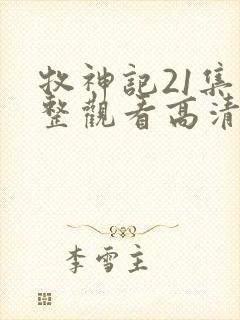 牧神記21集
整觀看高清
李雪主